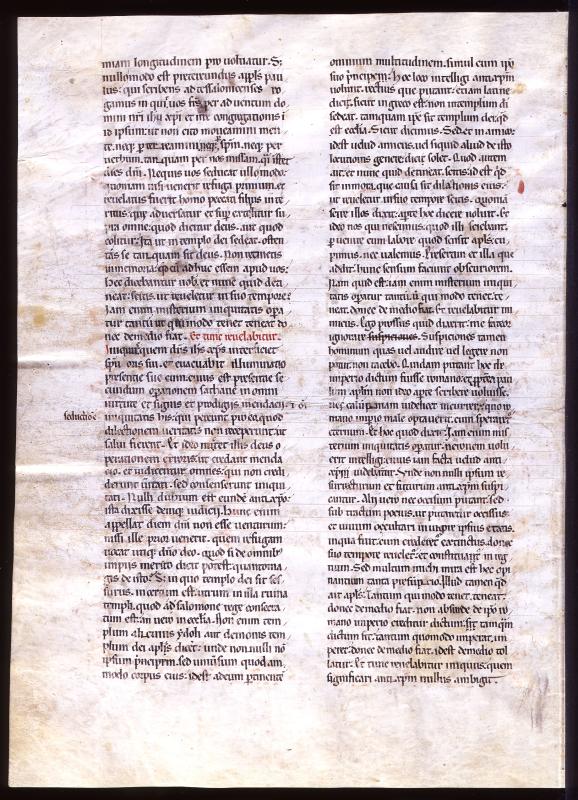 miam longitudinem pro uoluatur. S;
nullomodo est pretereundus aplꝰs pau
lus: qui scribens ad tessalonicenses ro
gamus in quit uos frs per ad uentum do
mini nrī ihu xpī et nre congregationis ī
id ipsum: ut non cito moueamini men
te. neq; neq; per spm. neq; per
uerbum. tam quam per nos missam. qsi istet
dies dni. Nequis uos seducat ullomodo:
quoniam nisi uenerit refuga primum. et
reuelatus fuerit homo peccati filius in te
ritus. qui aduersatur et sup extollitur su
pra omne: quod dicitur deus. aut quod
colitur: Ita ut in templo dei sedeat. osten
tans se tam quam sit deus. Non retinetis
in memoria: adhuc essem apud uos:
hec dicebantur uob. et nunc quid deti
neat: scitis. ut reueletur in suo tempore:
Iam enim misterium iniquitatis opa
tur tantu ut qui modo tenet teneat do
nec demedio fiat. Et tunc reuelabitur
iniquꝰ quem dns ihs xps interficiet
spu oris sui. et euacuabit illuminatio
presentie sue eum. cuius est presentie se
cundum operationem sathane in omni
uirtute et signis et prodigiis mendacii. 
seductiōe
iniquitatis his: qui pereunt pro eo. quod
dilectionem ueritatis non receperunt. ut
salui fierent. Et ideo mittet illis deus o
perationem erroris. ut credant menda
cio. et iudicentur omnes: qui non credi
derunt ueritati. sed consenserunt iniqui
tati. Nulli dubium est eunde antixpo
ista dixisse demq; iudicii. hunc enim
appellat diem dni non esse uenturum:
nisi ille prior uenerit. quem refugam
uocat utiq; dno deo. quod si de omnib;
impiis merito dicit potest: quantoma
gis de isto? S; in quo templo dei sit ses
surus. incertum est: utrum in illa ruina
templi. quod ad salomone rege constru
ctum est: an uero in ecclia. Non enim tem
plum alicuius ydoli. aut demonis tem
plum dei aplꝰs dicet: unde non nulli no
ipsum principem. sed uniūsum quodam
modo corpus eius: idest adeum pertinente
ominum multitudinem. simul cum ipo
suo principem. hec loco intelligi antixpm
uolunt. rectius que putant: etiam latine
dici: sicut in greco est: non in templum di
sedeat. tamquam ipse sit templum dei. qd
est ecclia. Sicut dicimus. Sed et in amico:
idest uelud amicus. uel siquid aliud de isto
locutionis genere dici solet. Quod autem
ait: et nunc quid detineat. scitis: id est qd
sit inmora. que causa sit dilationis eius:
ut reueletur insuo tempore scitis. quoniā
scire illos dixit: apte hoc dicere noluit. Et
ideo nos qui nescimus: quod illi sciebant.
p uenire cum labore quod sensit aplꝰs: cu
pimus. nec ualemus. Presertim et illa que
addit: hunc sensum faciunt obscuriorem.
Nam quid est: iam enim misterium iniqui
tatis opatur tantu. ut qui modo tenet. te
neat. donec de medio fiat. Et reuelabitur ini
micus. Ego prorsus quid dixerit: me fateor
ignorare suspiciones. Suspiciones tamen
hominum quas uel audire uel legere non
potui: non tacebo. Quidam putant hoc de
imperio dictum fuisse romano: et pptea pau
lum aplm non ideo apte scribere uoluisse.
nec calumpniam uidelicet incurreret: quo ro
mano impio male optauerit. cum speraret
eternum. Et hoc quod dixit: Iam enim mis
terium iniquitatis opatur. neronem uolu
erit intelligi: cuius iam facta uelud anti
xpīm uidebantur. Unde non nulli ipsum re
surrecturum et futurum antixpm suspi
cantur. Alii uero nec occisum putant: sed
sub tractum pocius. ut putaretur occisus:
et uiuum occultari in uigore ipsius etatis.
in qua fuit. cum crederetur extinctus. donec
suo tempore reueletur: et constituatur in reg
num. Sed multum michi mira est hec opi
nantium tanta presumptio. Illud tamen qd
ait aplꝰs: Tantum qui modo tenet. teneat:
donec demedio fiat. non absurde de ipo ro
mano imperio creditur dictum: tamqm
dictum sit: tantum quomodo imperat. im
peret: donec demedio fiat. idest demedio tol
latur. Et tunc reuelabitur iniquus: quem
significari antixpm nullus ambigit.